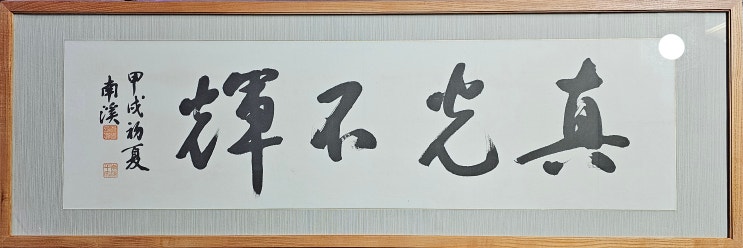 真光不輝
甲戌初夏
南溪